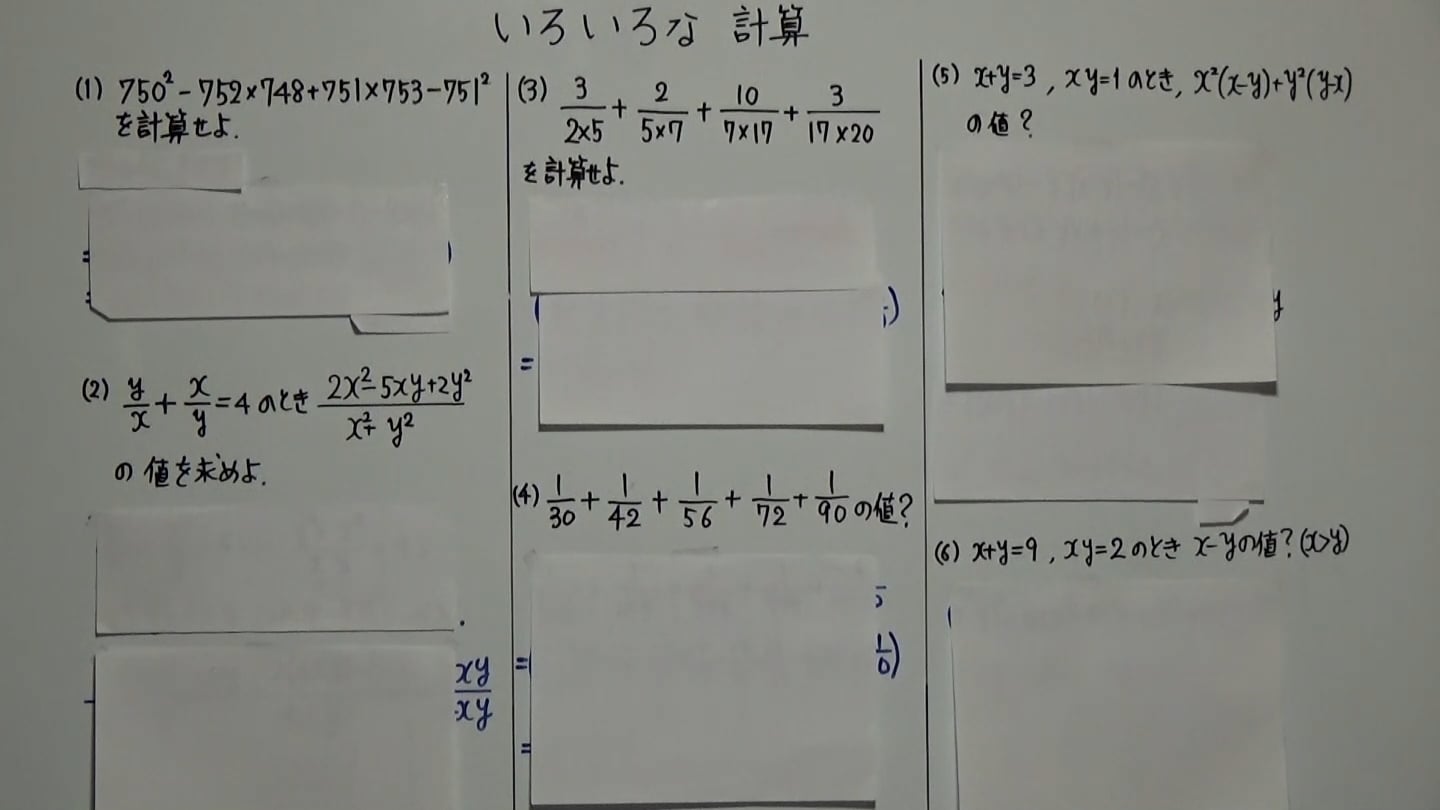 いろいろな 計算
(1) 750² - 752×748+751×753-751²
を計算せよ.
=
=
(2) y/x + x/y = 4 のとき (2x²-5xy+2y²)/(x²+y²)
の値を求めよ.
xy/xy
(3) 3/(2×5) + 2/(5×7) + 10/(7×17) + 3/(17×20)
を計算せよ.
=
(4) 1/30 + 1/42 + 1/56 + 1/72 + 1/90 の値?
=
=
(5) x+y=3 , xy=1のとき, x²(x-y)+y²(y-x)
の値?
y
(6) x+y=9 , xy=2のとき x-yの値?(x>y)